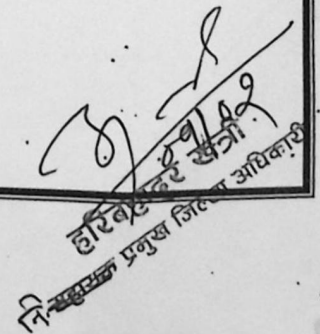 ०१/०२
हरिबहादुर खत्री
नि. सहायक प्रमुख जिल्ला अधिकारी